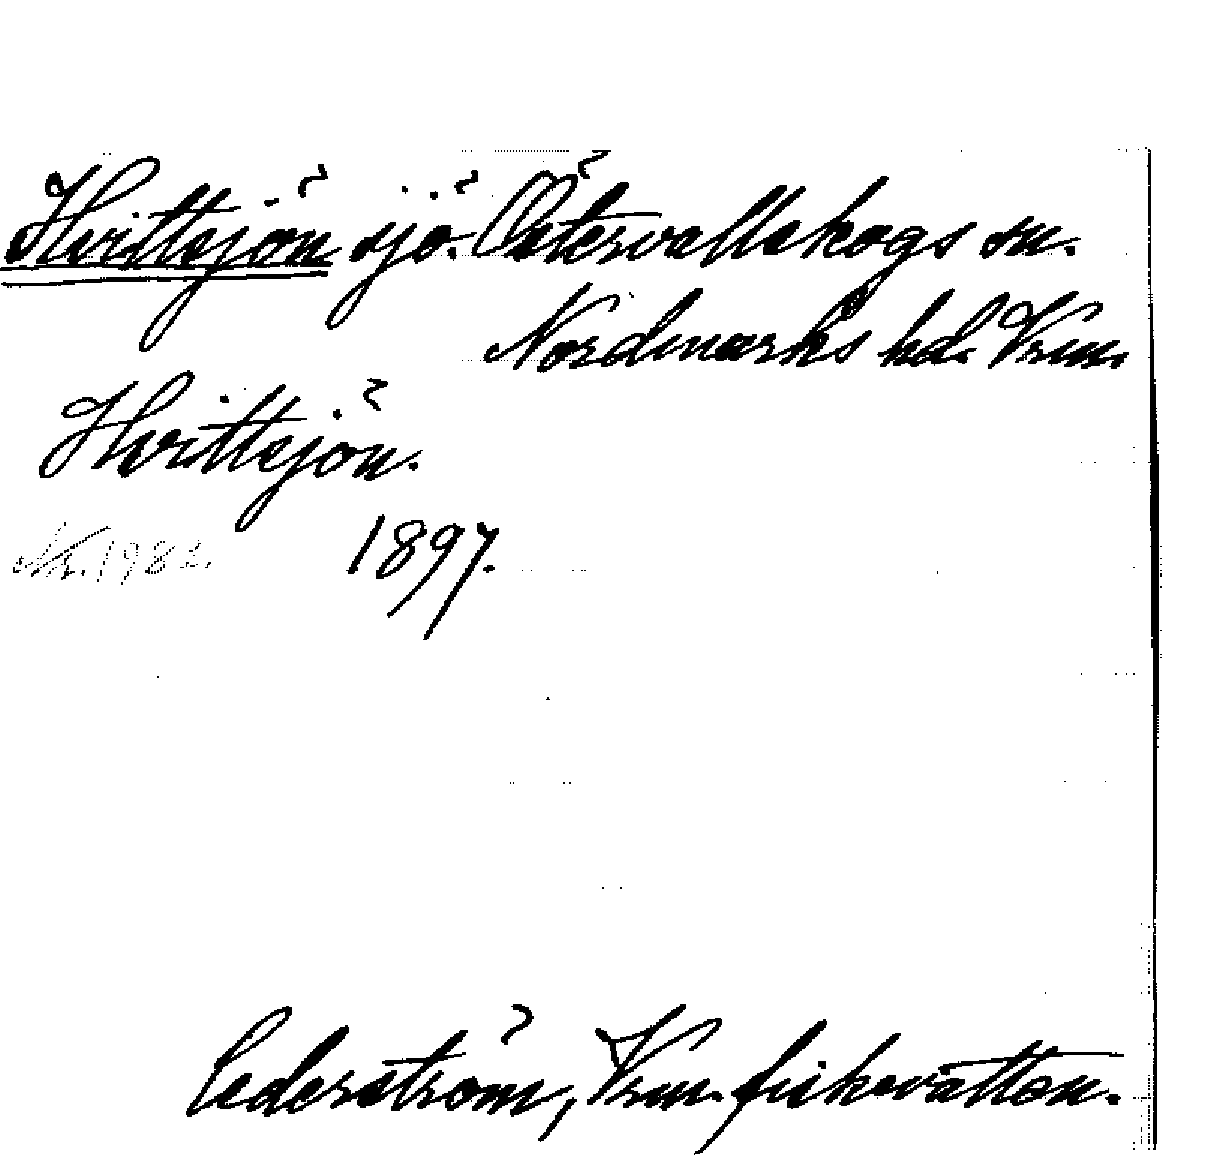 Hvittsjön sjö. Östervallskogs sn.
Nordmarks hd. Vrm.
Hvittsjön.
Nr. 1982. 1897.
Cederström, Vrm. fiskevatten.